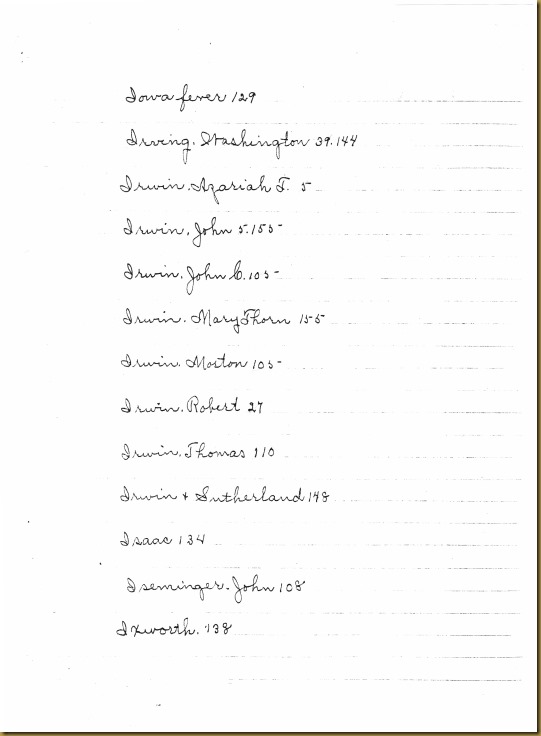 Iowa fever 129
Irving, Washington 39.144
Irwin. Azariah T. 5
Irwin, John 5.155
Irwin, John C. 105
Irwin. Mary Thorn 155
Irwin. Morton 105
Irwin. Robert 27
Irwin, Thomas 110
Irwin + Sutherland 148
Isaac 134
Iseminger. John 108
Ixworth. 138